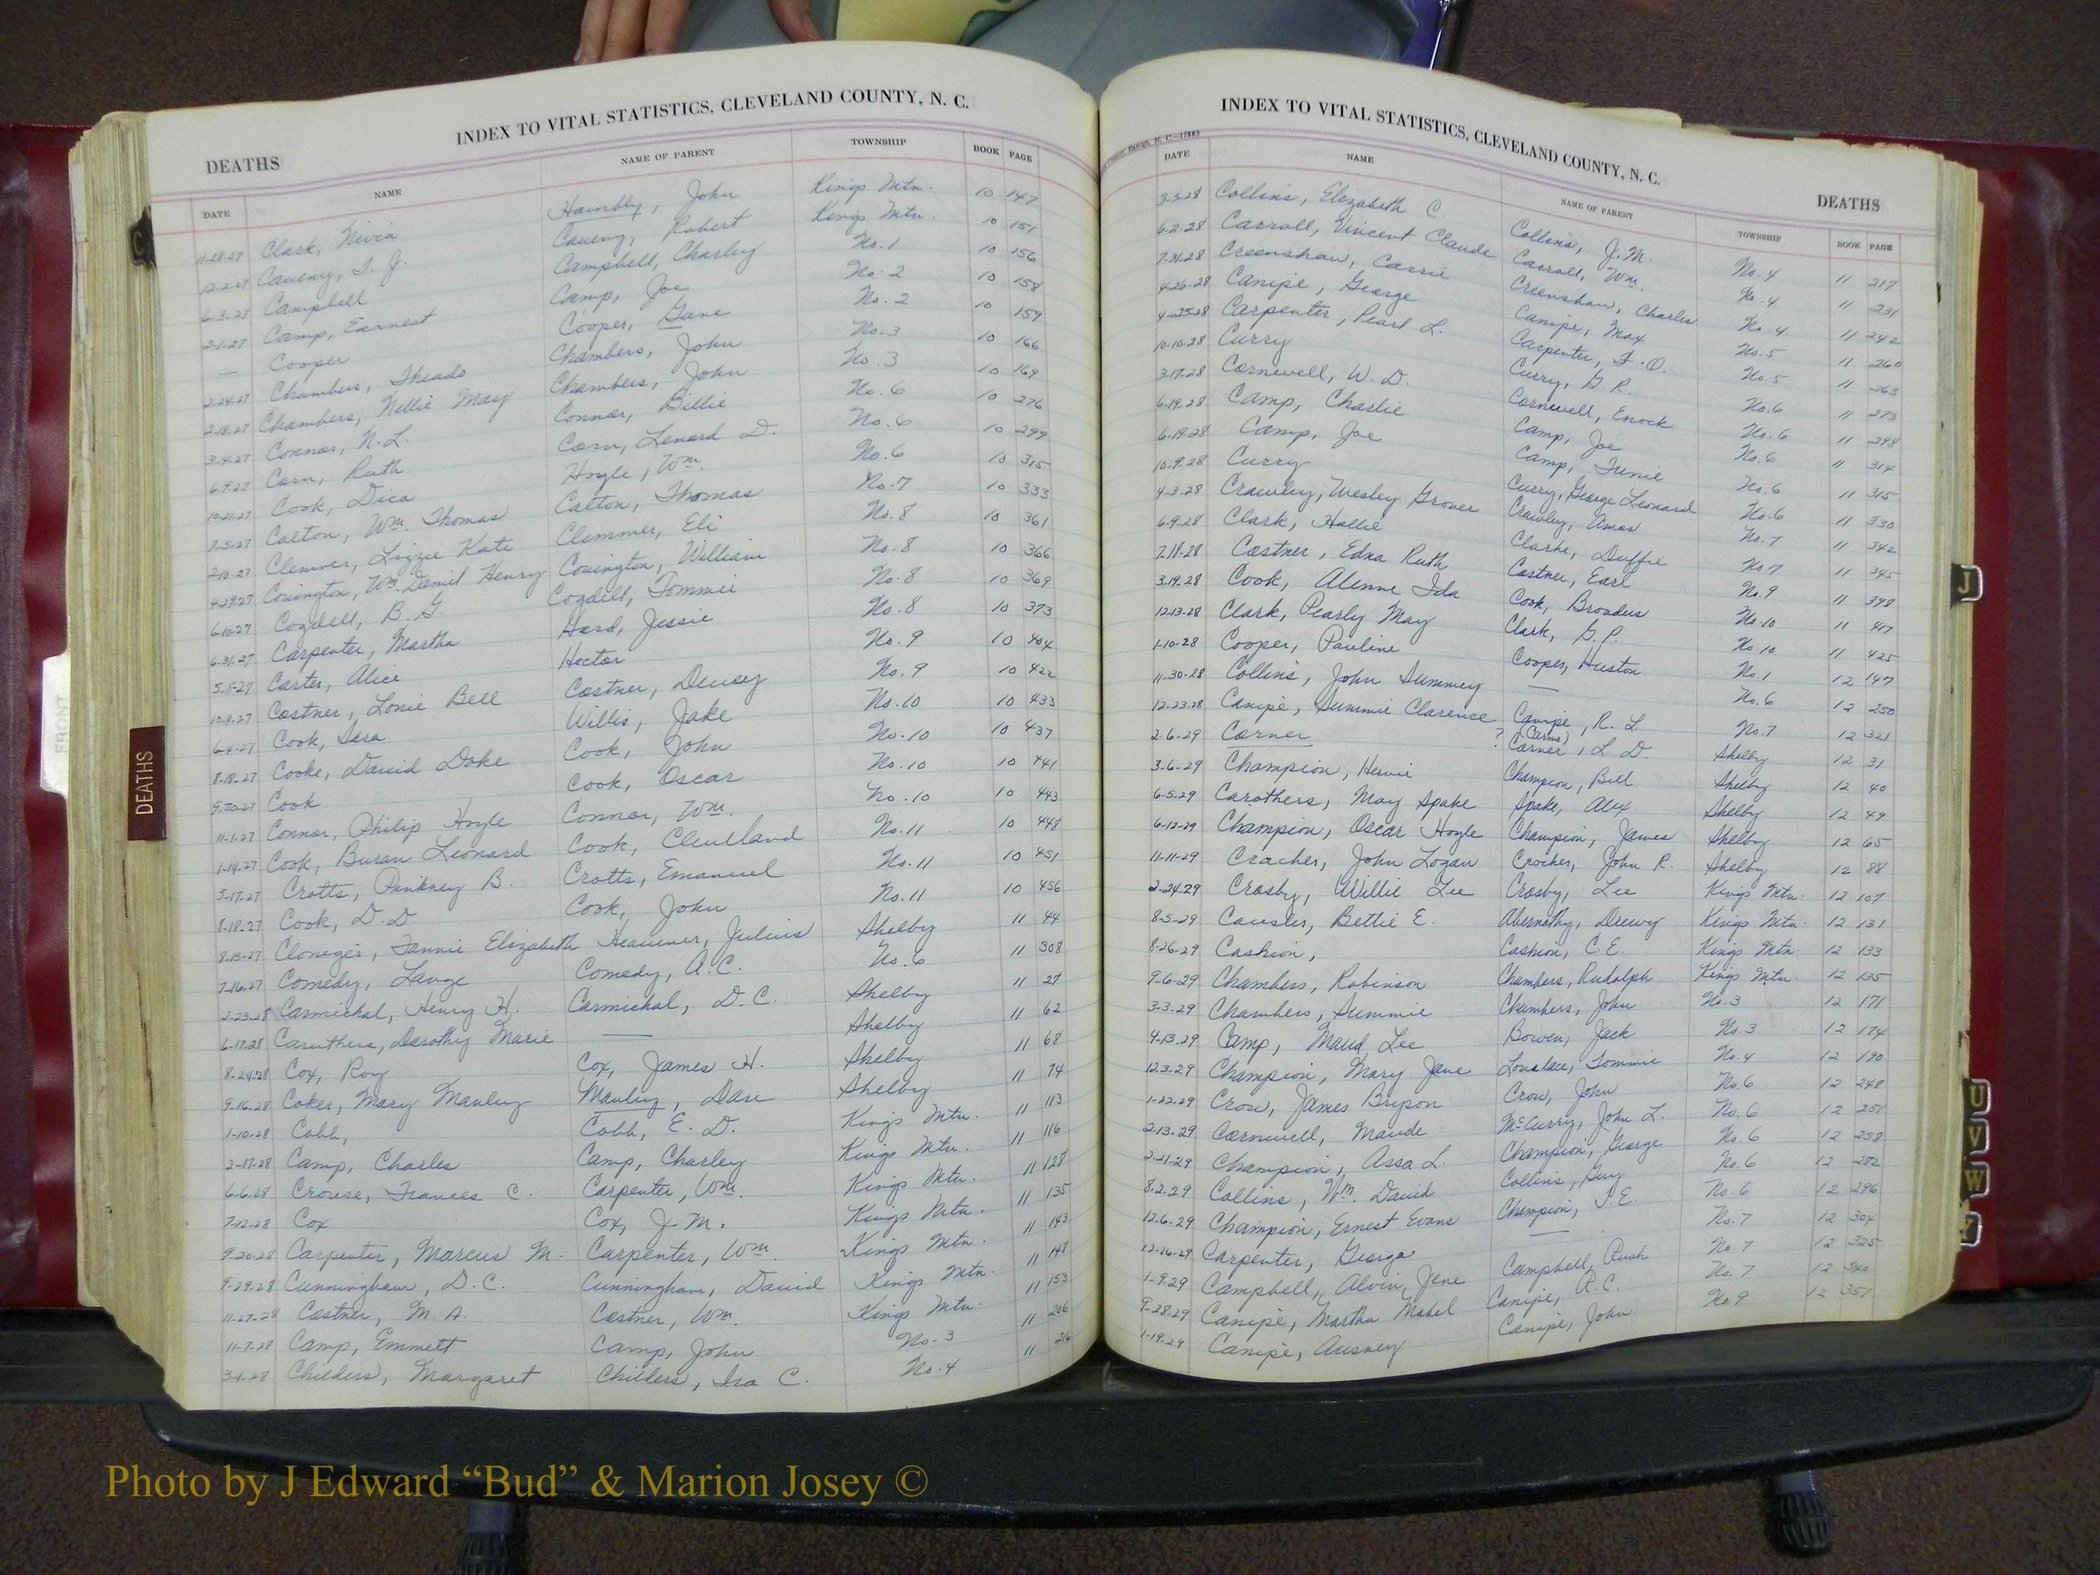 INDEX TO VITAL STATISTICS, CLEVELAND COUNTY, N. C.
DEATHS
DATE NAME NAME OF PARENT TOWNSHIP BOOK PAGE
11-28-27 Clark, Nivia Hambly, John Kings Mtn. 10 147
12-2-27 Caveny, T. J. Caveny, Robert Kings Mtn. 10 151
6-3-27 Campbell Campbell, Charley No. 1 10 156
2-1-27 Camp, Earnest Camp, Joe No. 2 10 158
— Cooper Cooper, Gane No. 2 10 159
2-24-27 Chambers, Theado Chambers, John No. 3 10 166
2-18-27 Chambers, Nellie May Chambers, John No. 3 10 169
3-4-27 Connor, N. L. Connor, Billie No. 6 10 276
6-9-27 Corn, Ruth Corn, Lenard D. No. 6 10 299
10-21-27 Cook, Dica Hoyle, Wm. No. 6 10 315
7-5-27 Calton, Wm. Thomas Calton, Thomas No. 7 10 333
2-10-27 Clemmer, Lizzie Kate Clemmer, Eli No. 8 10 361
4-29-27 Covington, Wm. Daniel Henry Covington, William No. 8 10 366
6-10-27 Cogdell, B. G. Cogdell, Tommie No. 8 10 369
6-31-27 Carpenter, Martha Hord, Jessie No. 8 10 373
5-1-27 Carter, Alice Hector No. 9 10 404
10-9-27 Costner, Lonie Bell Costner, Dewey No. 9 10 422
6-4-27 Cook, Sara Willis, Jake No. 10 10 433
8-18-27 Cooke, David Doke Cook, John No. 10 10 437
9-30-27 Cook Cook, Oscar No. 10 10 441
11-1-27 Connor, Philip Hoyle Connor, Wm. No. 10 10 443
1-14-27 Cook, Buran Leonard Cook, Cleveland No. 11 10 448
5-17-27 Crotts, Pinkney B. Crotts, Emanuel No. 11 10 451
8-18-27 Cook, D. D. Cook, John No. 11 10 456
8-15-27 Cloneger, Fannie Elizabeth Heavener, Julius Shelby 11 44
7-16-27 Comedy, Lauge Comedy, A. C. No. 6 11 308
2-23-28 Carmichal, Henry H. Carmickal, D. C. Shelby 11 27
6-17-28 Caruthers, Dorothy Marie — Shelby 11 62
8-24-28 Cox, Roy Cox, James H. Shelby 11 68
9-16-28 Coker, Mary Mauley Mauley, Dan Shelby 11 74
1-10-28 Cobb, Cobb, E. D. Kings Mtn. 11 113
2-17-28 Camp, Charles Camp, Charley Kings Mtn. 11 116
6-6-28 Crouse, Frances C. Carpenter, Wm. Kings Mtn. 11 128
7-12-28 Cox Cox, J. M. Kings Mtn. 11 135
9-20-28 Carpenter, Marcus M. Carpenter, Wm. Kings Mtn. 11 143
9-29-28 Cunningham, D. C. Cunningham, David Kings Mtn. 11 148
11-27-28 Costner, M. A. Costner, Wm. Kings Mtn. 11 153
11-7-28 Camp, Emmett Camp, John No. 3 11 206
3-1-28 Childers, Margaret Childers, Ira C. No. 4 11 216
INDEX TO VITAL STATISTICS, CLEVELAND COUNTY, N. C.
DEATHS
DATE NAME NAME OF PARENT TOWNSHIP BOOK PAGE
3-5-28 Collins, Elizabeth C. Collins, J. M. No. 4 11 217
6-2-28 Carroll, Vincent Claude Carroll, Wm. No. 4 11 231
7-31-28 Creenshaw, Carrie Creenshaw, Charles No. 4 11 242
4-26-28 Canipe, George Canipe, Max No. 5 11 260
4-25-28 Carpenter, Pearl L. Carpenter, F. O. No. 5 11 263
10-10-28 Curry Curry, G. R. No. 6 11 273
3-17-28 Cornwell, W. D. Cornwell, Enock No. 6 11 298
6-19-28 Camp, Charlie Camp, Joe No. 6 11 314
6-19-28 Camp, Joe Camp, Tunie No. 6 11 315
10-9-28 Curry Curry, George Leonard No. 6 11 330
4-3-28 Crawley, Wesley Grover Crawley, Amos No. 7 11 342
6-9-28 Clark, Hallie Clarke, Duffie No. 7 11 345
7-18-28 Costner, Edna Ruth Costner, Earl No. 9 11 398
3-19-28 Cook, Alenne Ida Cook, Broadus No. 10 11 417
12-13-28 Clark, Pearly May Clark, G. P. No. 10 11 425
1-10-28 Cooper, Pauline Cooper, Huston No. 1 12 147
11-30-28 Collins, John Summey — No. 6 12 250
12-23-28 Canipe, Summie Clarence Canipe, R. L. No. 7 12 321
2-6-29 Corner ? (Carme) Corner, L. D. Shelby 12 31
3-6-29 Champion, Hewie Champion, Bill Shelby 12 40
6-5-29 Carothers, May Spake Spake, Alex Shelby 12 49
6-12-29 Champion, Oscar Hoyle Champion, James Shelby 12 65
11-11-29 Cracher, John Logan Crocker, John R. Shelby 12 88
2-24-29 Crosby, Willie Lee Crosby, Lee Kings Mtn. 12 107
8-5-29 Causler, Bettie E. Abernathy, Drewy Kings Mtn. 12 131
8-26-29 Cashion, Cashion, C. E. Kings Mtn 12 133
9-6-29 Chambers, Robinson Chambers, Rudolph Kings Mtn. 12 135
3-3-29 Chambers, Summie Chambers, John No. 3 12 171
4-13-29 Camp, Maud Lee Bowen, Jack No. 3 12 174
12-3-29 Champion, Mary Jane Lovelace, Tommie No. 4 12 190
1-22-29 Crow, James Bryson Crow, John No. 6 12 248
2-13-29 Cornwell, Maude McCurry, John L. No. 6 12 251
2-21-29 Champion, Assa L. Champion, George No. 6 12 258
8-2-29 Collins, Wm. David Collins, Guy No. 6 12 282
12-6-29 Champion, Ernest Evans Champion, T. E. No. 6 12 296
12-26-29 Carpenter, George — No. 7 12 304
1-9-29 Campbell, Alvin Jene Campbell, Rush No. 7 12 325
9-28-29 Canipe, Martha Mabel Canipe, R. C. No. 7 12 340
1-19-29 Canipe, Ausney Canipe, John No. 9 12 351
C
DEATHS
FRONT
J
U
V
W
Photo by J Edward “Bud” & Marion Josey ©